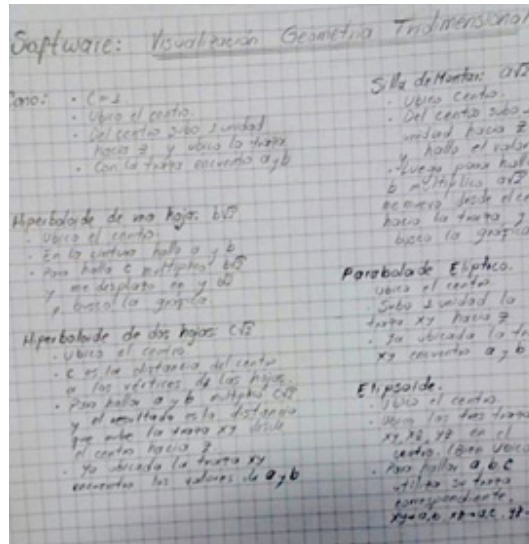 Software: Visualización Geometría Tridimensional
Cono:
· C=1
· Ubico el centro.
· Del centro subo 1 unidad
hacia z y ubico la traza
· Con la traza encuentro a y b
Hiperboloide de una hoja: b√2
· Ubico el centro.
· En la cintura hallo a y b
· Para hallar c multiplico b√2
y me desplazo en y b√2
y busco la gráfica.
Hiperboloide de dos hojas: c√2
· Ubico el centro.
· C es la distancia del centro
a los vértices de las hojas.
· Para hallar a y b multiplico c√2
y el resultado es la distancia
que sube la traza xy desde
el centro hacia z
· Ya ubicada la traza xy
encuentro los valores de a y b
Silla de Montar: a√2
· Ubico centro.
· Del centro subo
unidad hacia z
y hallo el valor
· Luego para hallar
b multiplico a√2
me muevo desde el
hacia la traza y
busco la gráfica
Paraboloide Elíptico.
Ubico el centro
· Subo 1 unidad la
traza xy hacia z
· Ya ubicada la
xy encuentro a y b
Elipsoide.
· Ubico el centro
· Ubico las tres trazas
xy, xz, yz en el
centro.
· Para hallar a, b, c
utilizo su traza
correspondiente.